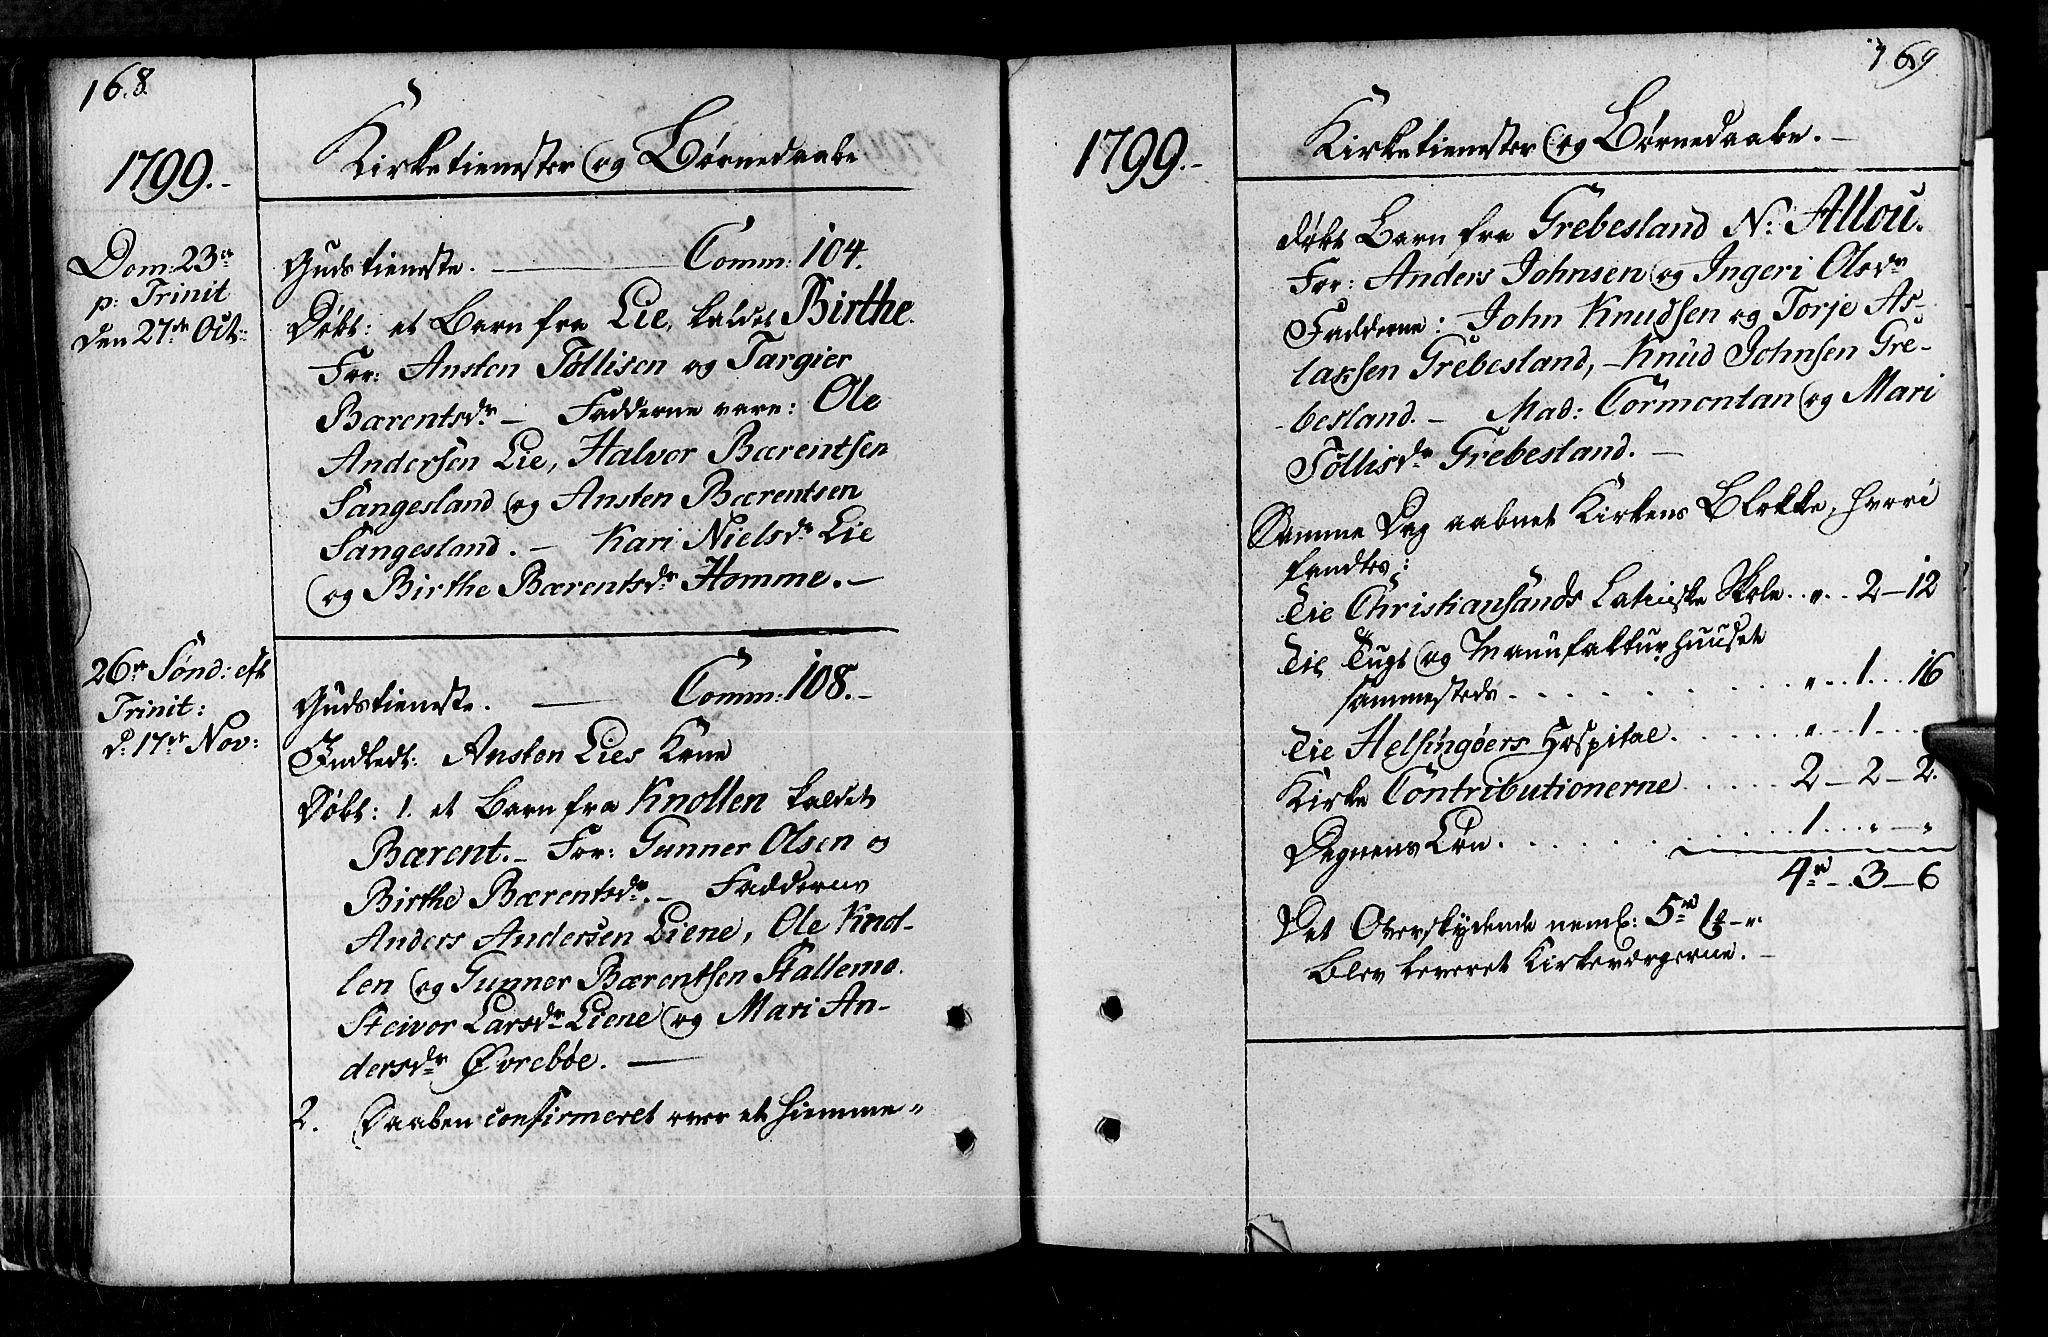 168.
1799.-
Kirketienester og Børnedaabe
Dom: 23de
p: Trinit
den 27de Oct:
Gudstieneste. — Comm: 104.
Døbt: et Barn fra Lie, kaldet Birthe.
For: Ansten Tøllisen og Targier
Bærentsdr - Fadderne vare: Ole
Andersen Lie, Halvor Bærentsen
Sangesland og Ansten Bærentsen
Sangesland. - Kari Nielsdr Lie
og Birthe Bærentsdr Homme. -
26de Sønd: eft
Trinit:
d: 17de Nov:
Gudstieneste. — Comm: 108. -
Indledt: Ansten Lies Kone
Døbt: 1. et Barn fra Knollen kaldet
Bærent. - For: Gunner Olsen og
Birthe Bærentsdr. - Fadderne
Anders Andersen Liene, Ole Knol-
len og Gunner Bærentsen Stallemo.
Steivor Larsdr Liene og Mari An-
dersdr Øvrebøe. —
2. Daaben confirmeret over et hiemme-
169
1799. -
Kirketienester og Børnedaabe. -
døbt Barn fra Grebesland N: Allou.
For: Anders Johnsen og Ingeri Olsdr
Fadderne: John Knudsen og Torje As-
laksen Grebesland, - Knud Johnsen Gre-
-besland. - Mad: Cormontan og Mari
Tøllisdr Grebesland. -
Samme Dag aabnet Kirkens Blokke, hvori
fandtes:
Til Christiansands Latinske Skole . . " . . 2 - 12
Til Tugt og Manufakturhuuset
sammesteds . . . . . " . . 1 . . . 16
Til Helsingøers Hospital . . . . . " . . 1 . . .
Kirke Contributionerne . . . . . 2 - 2 - 2.
Degnens Løn . . . . . 1 . . . " - "
4rd - . 3 - 6
Det Overskydende neml: 5rd 1½ - "
blev leveret Kirkeværgerne. -